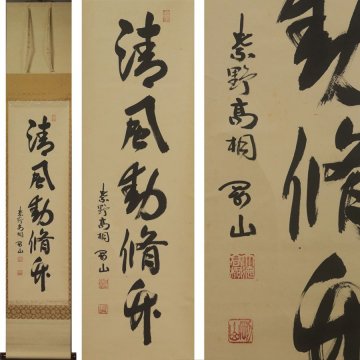 清風動脩竹
紫野高桐 剛山
清風動脩竹
紫野高桐 剛山
動脩竹
紫野高桐 剛山